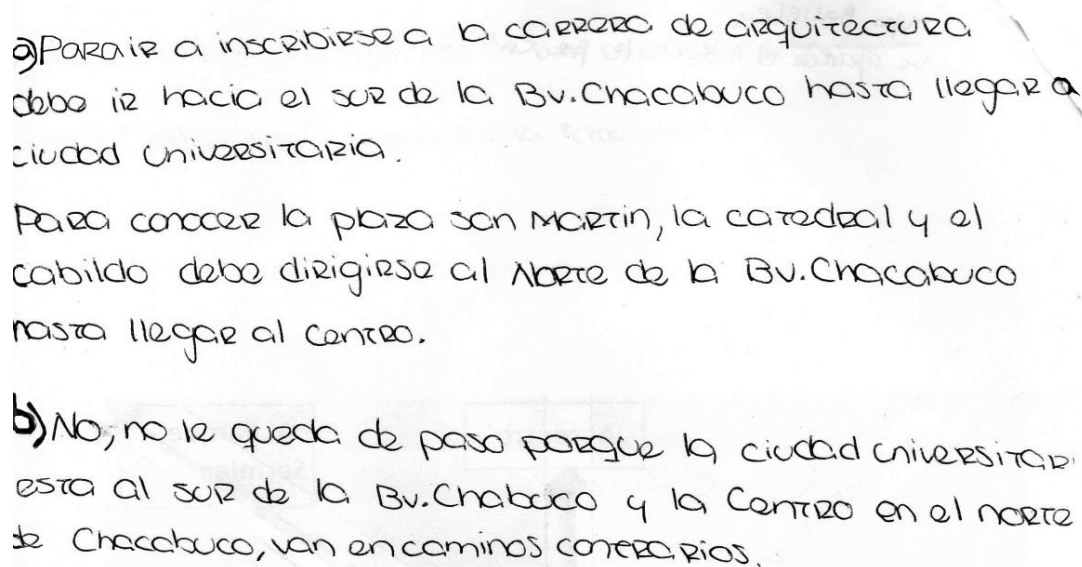 a) Para ir a inscribirse a la carrera de arquitectura
debe ir hacia el sur de la Bv. Chacabuco hasta llegar a
ciudad Universitaria.
Para conocer la plaza san Martin, la catedral y el
cabildo debe dirigirse al Norte de la Bv. Chacabuco
hasta llegar al Centro.
b) No, no le queda de paso porque la ciudad universitari
esta al sur de la Bv. Chaboco y la Centro en el norte
de Chacabuco, van en caminos contrarios.